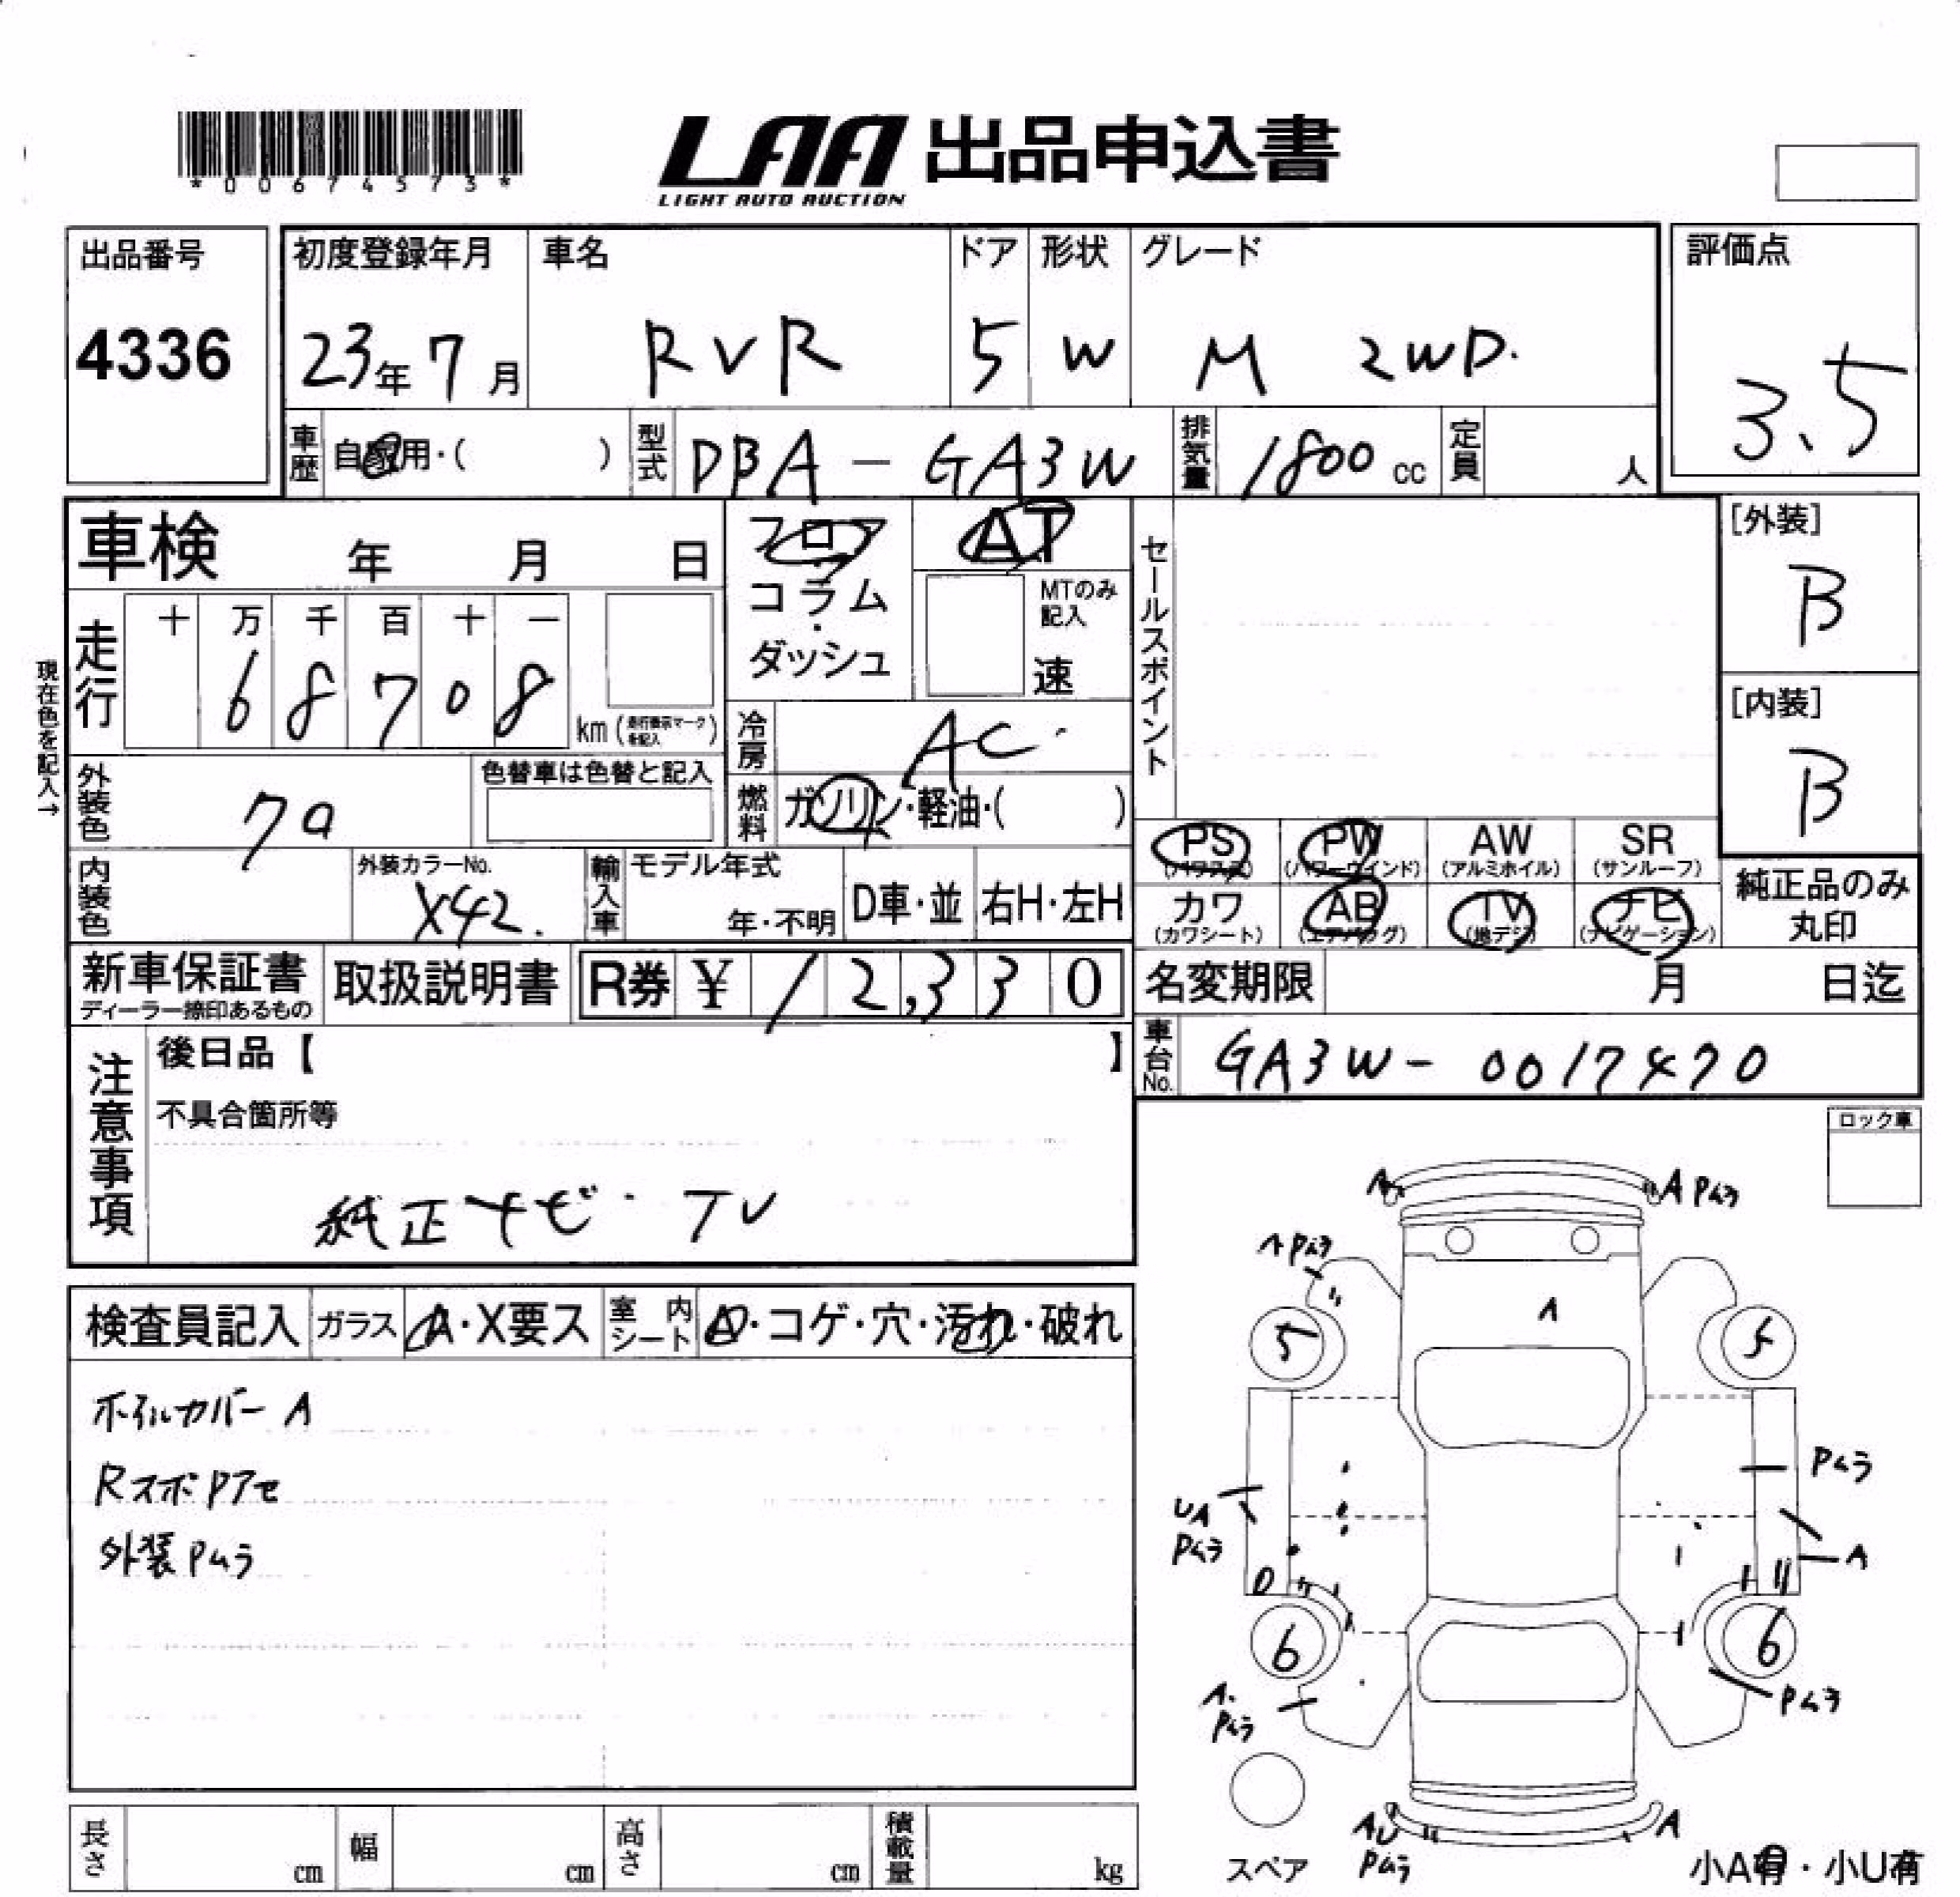 *00674573*
LAA 出品申込書
LIGHT AUTO AUCTION
出品番号
4336
初度登録年月
23年7月
車名
RVR
ドア
5
形状
W
グレード
M 2WD.
評価点
3.5
車歴 自家用・( )
型式 DBA-GA3W
排気量 1800 cc
定員 人
車検 年 月 日
走行 十 万 千 百 十 一
6 8 7 0 8
km (走行表示マークを記入)
現在色を記入→
フロア
コラム
・
ダッシュ
AT
MTのみ
記入
速
セールスポイント
[外装]
B
[内装]
B
冷房 AC
外装色
色替車は色替と記入
燃料 ガソリン・軽油・( )
内装色
外装カラーNo.
X42.
輸入車 モデル年式
年・不明
D車・並
右H・左H
PS
(パワステ)
PW
(パワーウインド)
AW
(アルミホイル)
SR
(サンルーフ)
カワ
(カワシート)
AB
(エアバッグ)
TV
(地デジ)
ナビ
(ナビゲーション)
純正品のみ
丸印
新車保証書
ディーラー捺印あるもの
取扱説明書
R券 ¥ 12,330
名変期限 月 日迄
車台No. GA3W-0017470
注意事項
後日品【 】
不具合箇所等
純正ナビ・TV
ロック車
検査員記入
ガラス A・X要ス
室内シート ・コゲ・穴・汚れ・破れ
ホイルカバーA
RスポPアセ
外装Pムラ
A
A Pムラ
A Pムラ
A
5
5
Pムラ
UA
Pムラ
A
6
6
A.
Pムラ
Pムラ
AU
Pムラ
A
スペア
小A有・小U有
長さ cm
幅 cm
高さ cm
積載量 kg